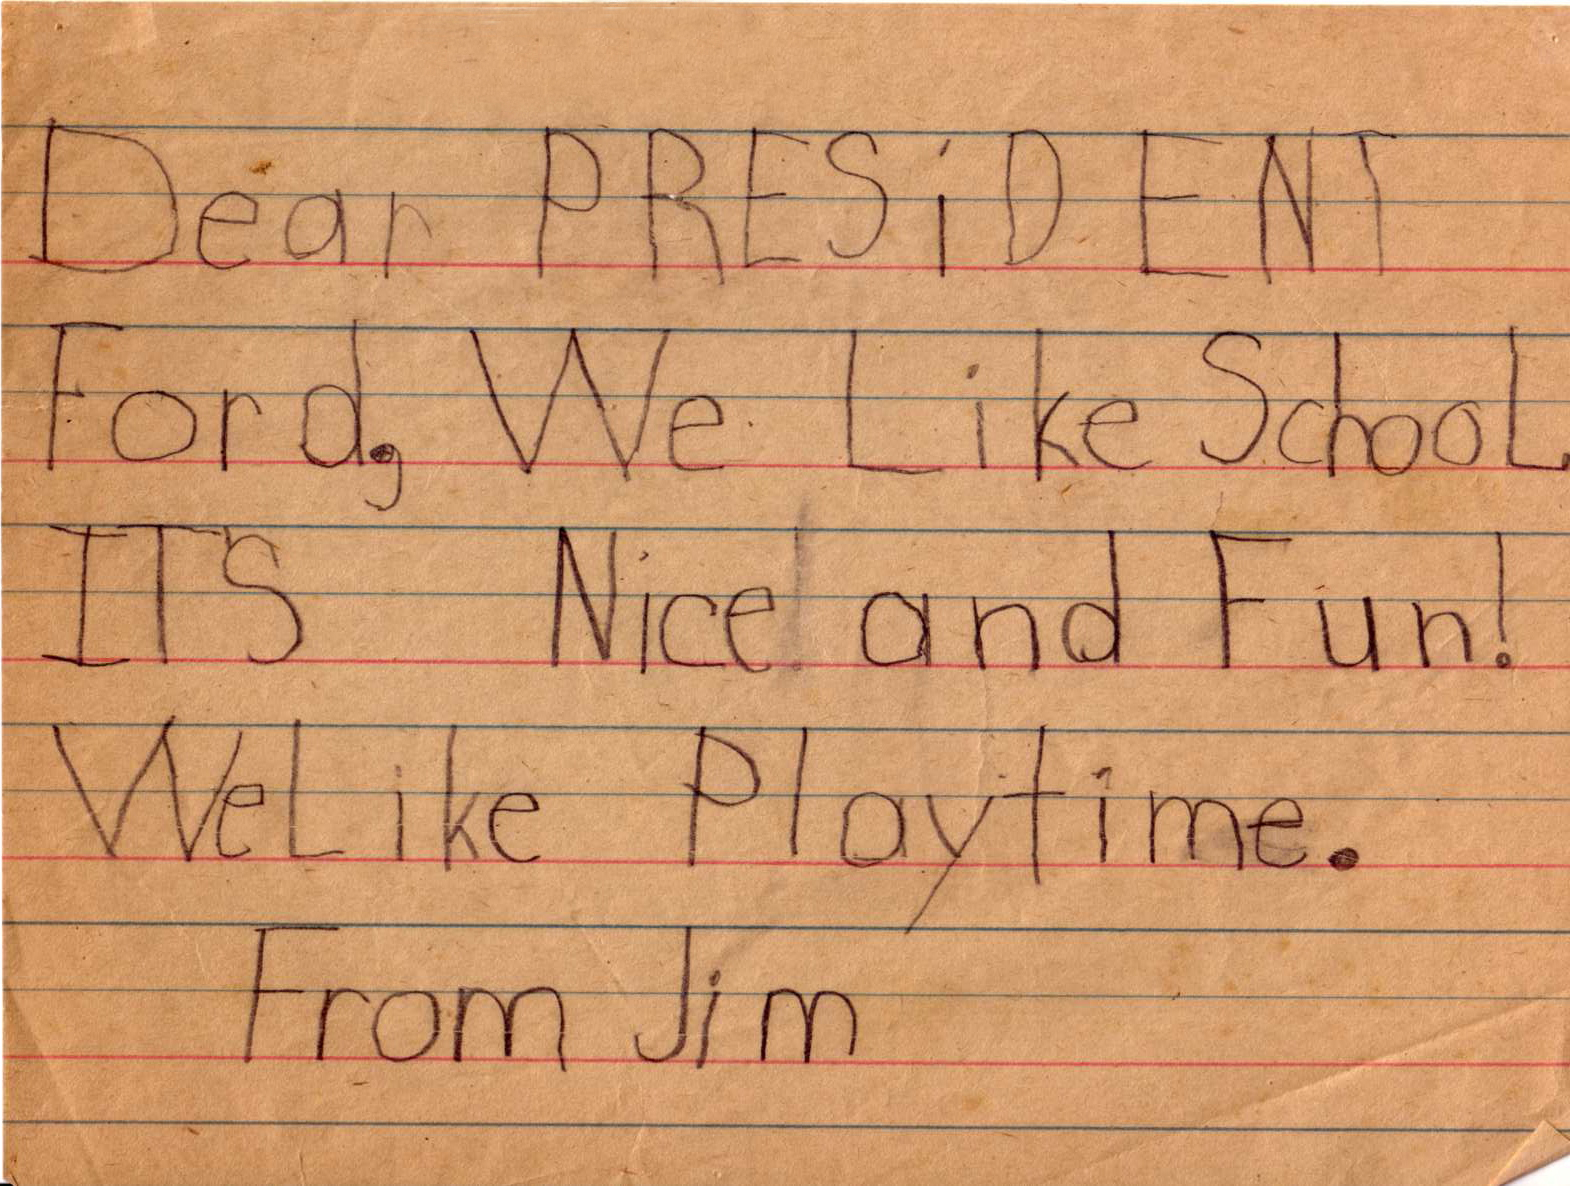 Dear PRESiDENT
Ford, We Like SchooL
IT'S Nice and Fun!
We Like Playtime.
From Jim